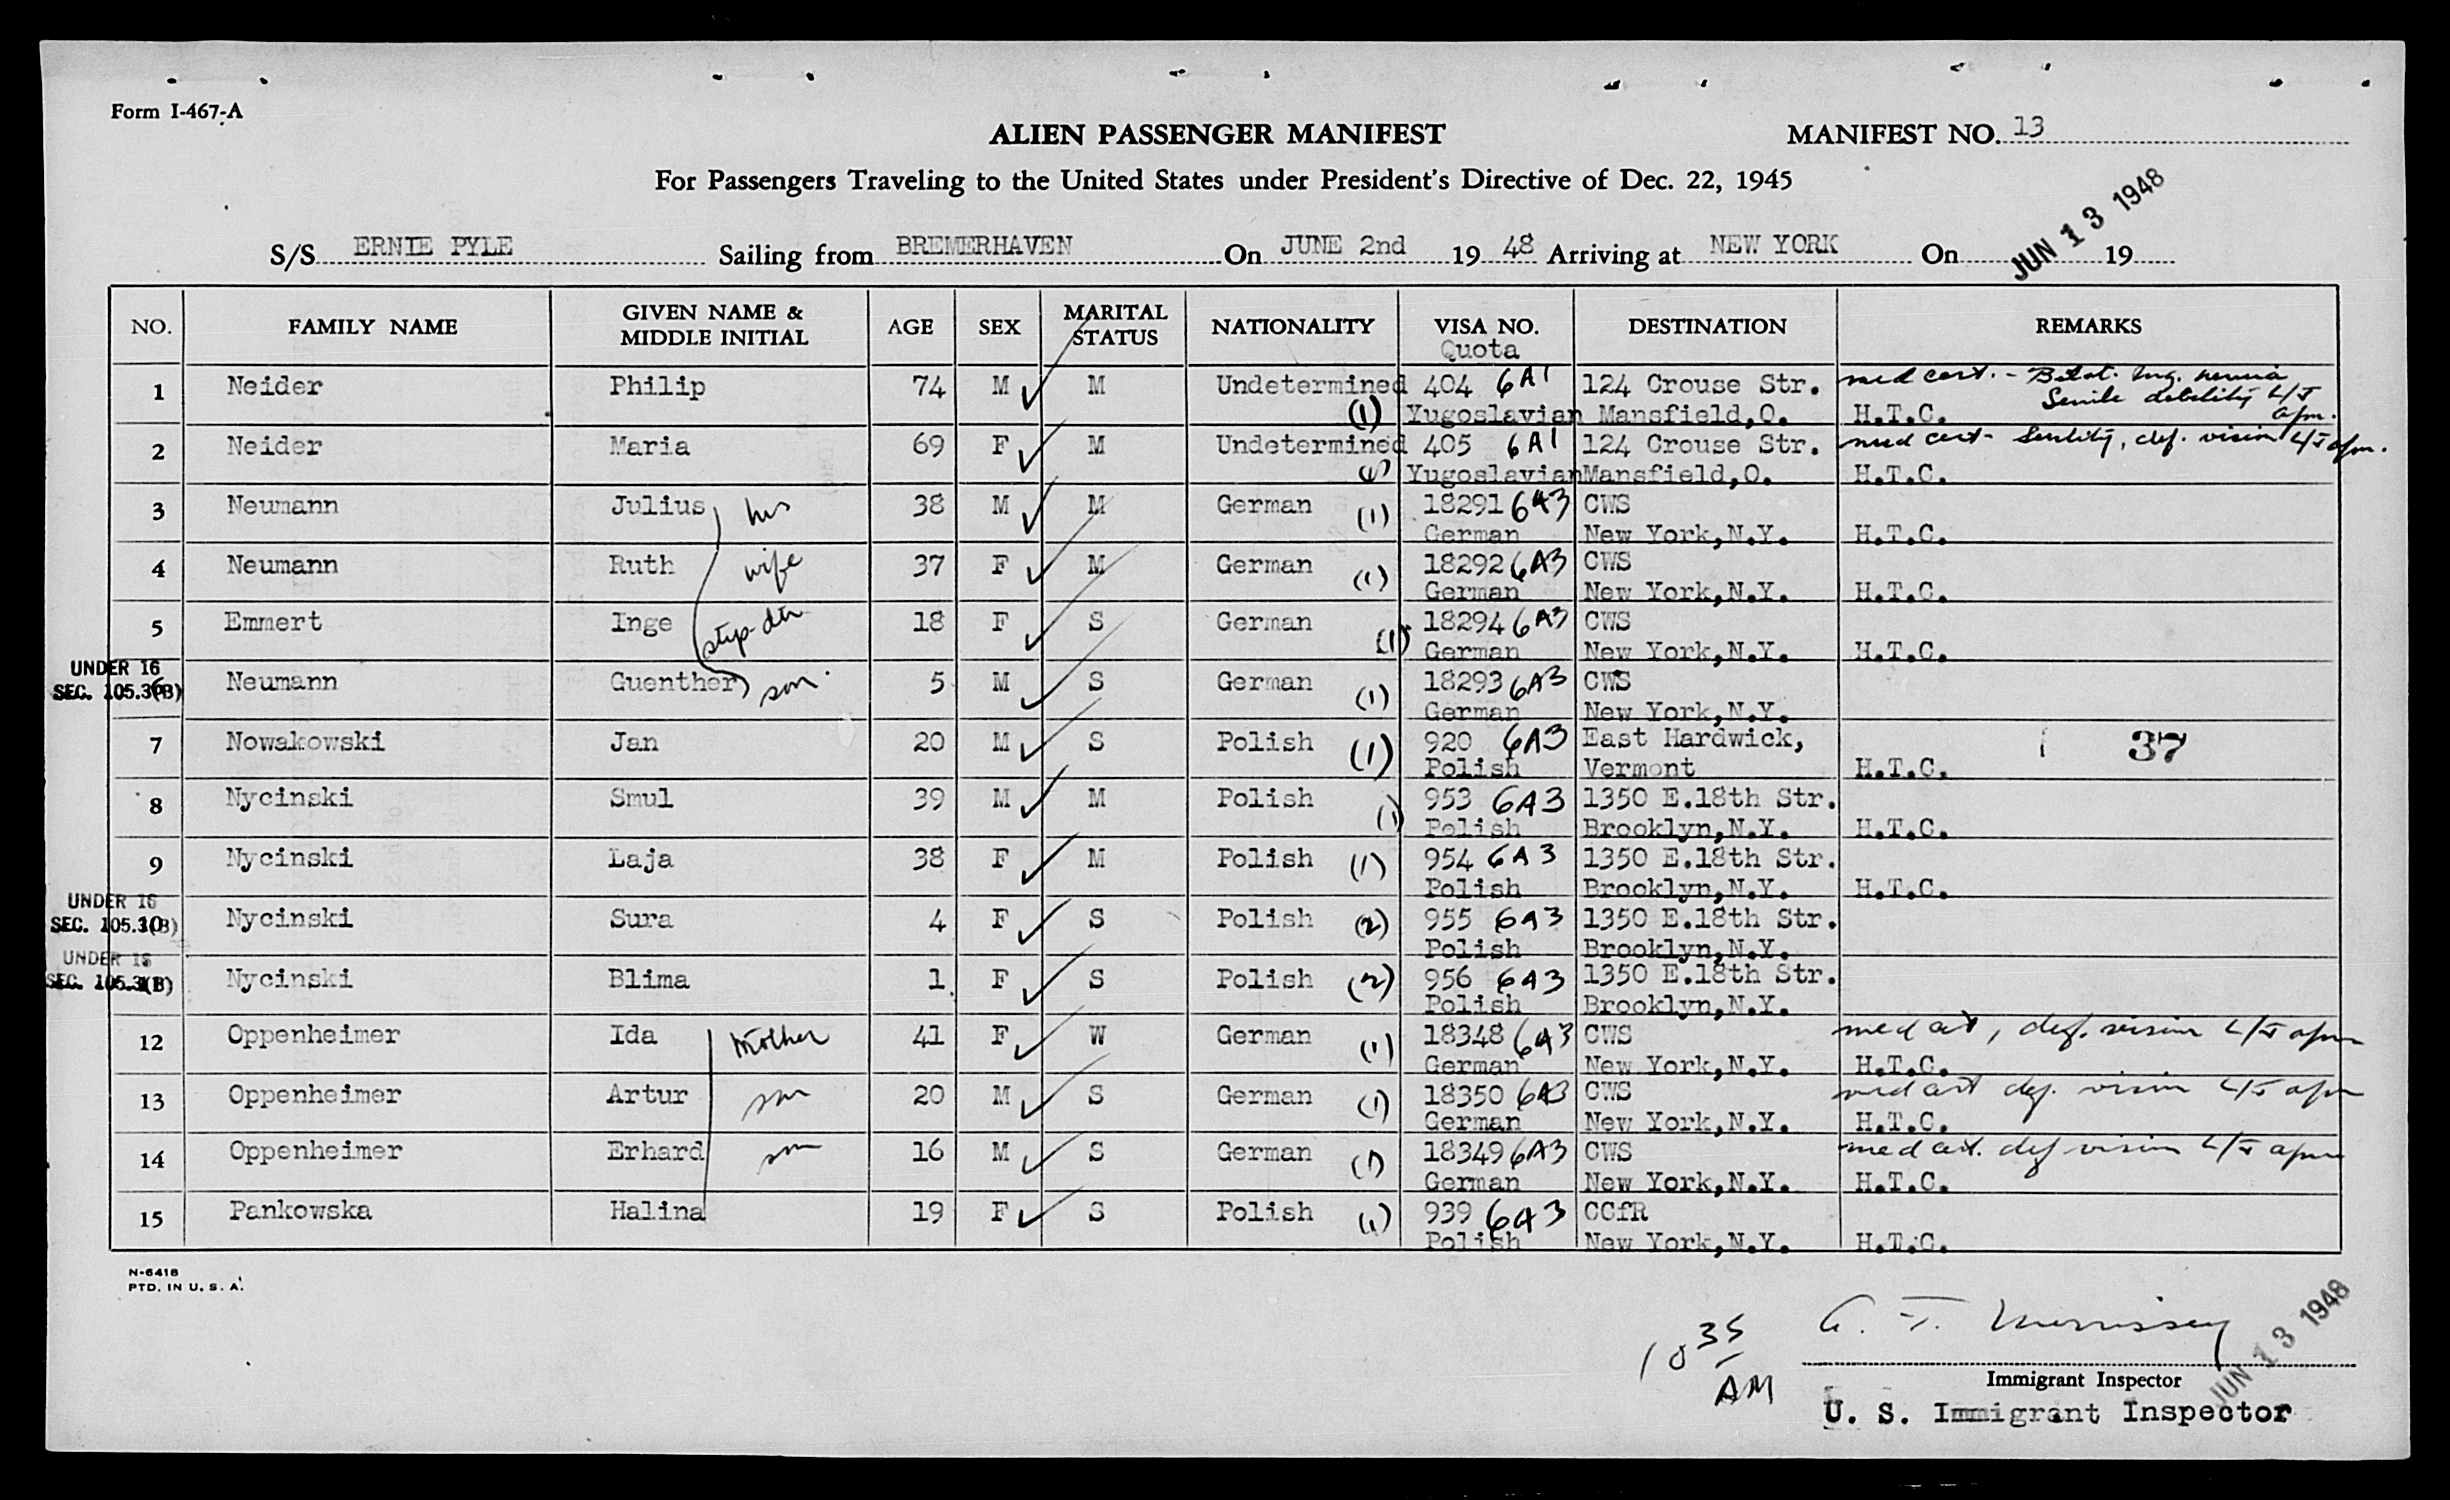 Form I-467-A
ALIEN PASSENGER MANIFEST
MANIFEST NO. 13
For Passengers Traveling to the United States under President's Directive of Dec. 22, 1945
JUN 13 1948
S/S ERNIE PYLE Sailing from BREMERHAVEN On JUNE 2nd 19 48 Arriving at NEW YORK On 19
NO. FAMILY NAME GIVEN NAME & MIDDLE INITIAL AGE SEX MARITAL STATUS NATIONALITY VISA NO. Quota DESTINATION REMARKS
1 Neider Philip 74 M M Undetermined 404 6A1 124 Crouse Str. med cert. - Bilat. Ing. hernia
Senile debility L/I
(1) Yugoslavian Mansfield,O. H.T.C. apm.
2 Neider Maria 69 F M Undetermined 405 6A1 124 Crouse Str. med cert - Senility, def. vision L/I apm.
(1) Yugoslavian Mansfield,O. H.T.C.
3 Neumann Julius hus 38 M M German 18291 6A3 CWS
(1) German New York,N.Y. H.T.C.
4 Neumann Ruth wife 37 F M German 18292 6A3 CWS
(1) German New York,N.Y. H.T.C.
5 Emmert Inge step-dtr 18 F S German 18294 6A3 CWS
(1) German New York,N.Y. H.T.C.
UNDER 16
SEC. 105.3(B)
6 Neumann Guenther son. 5 M S German 18293 6A3 CWS
(1) German New York,N.Y.
7 Nowakowski Jan 20 M S Polish 920 6A3 East Hardwick, 37
(1) Polish Vermont H.T.C.
8 Nycinski Smul 39 M M Polish 953 6A3 1350 E.18th Str.
(1) Polish Brooklyn,N.Y. H.T.C.
9 Nycinski Laja 38 F M Polish 954 6A3 1350 E.18th Str.
(1) Polish Brooklyn,N.Y. H.T.C.
UNDER 16
SEC. 105.3(B)
10 Nycinski Sura 4 F S Polish 955 6A3 1350 E.18th Str.
(2) Polish Brooklyn,N.Y.
UNDER 16
SEC. 105.3(B)
11 Nycinski Blima 1 F S Polish 956 6A3 1350 E.18th Str.
(2) Polish Brooklyn,N.Y.
12 Oppenheimer Ida Mother 41 F W German 18348 6A3 CWS med cert, def. vision L/I apm
(1) German New York,N.Y. H.T.C.
13 Oppenheimer Artur son 20 M S German 18350 6A3 CWS med cert def. vision L/I apm
(1) German New York,N.Y. H.T.C.
14 Oppenheimer Erhard son 16 M S German 18349 6A3 CWS med cert. def vision L/I apm
(1) German New York,N.Y. H.T.C.
15 Pankowska Halina 19 F S Polish 939 6A3 CCfR
(1) Polish New York,N.Y. H.T.C.
N-6418
PTD. IN U. S. A.
10 35 AM
A. F. Morrissey
JUN 13 1948
Immigrant Inspector
U. S. Immigrant Inspector